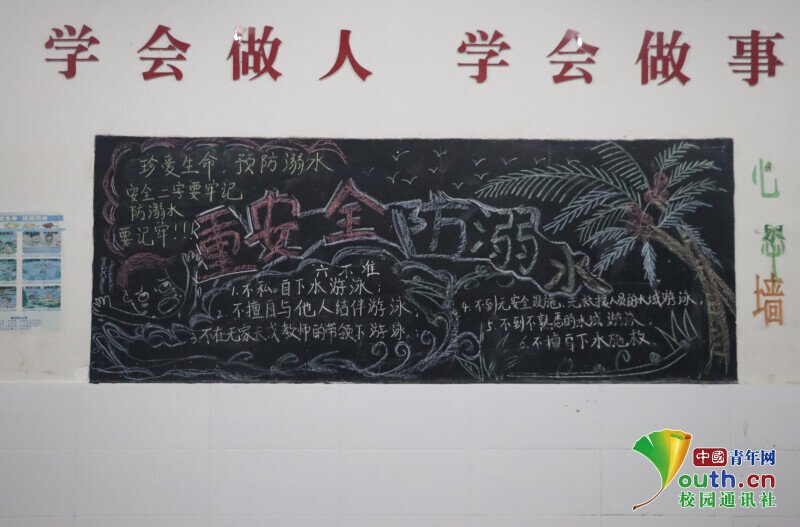 学会做人 学会做事
珍爱生命，预防溺水
安全二字要牢记
防溺水
要记牢!!!
重安全防溺水
六不准
1.不私自下水游泳；
2.不擅自与他人结伴游泳，
3.不在无家长或教师的带领下游泳；
4.不到无安全设施、无救援人员的水域游泳，
5.不到不熟悉的水域游泳，
6.不擅自下水施救。
心
墙
中國青年网
youth.cn
校园通讯社